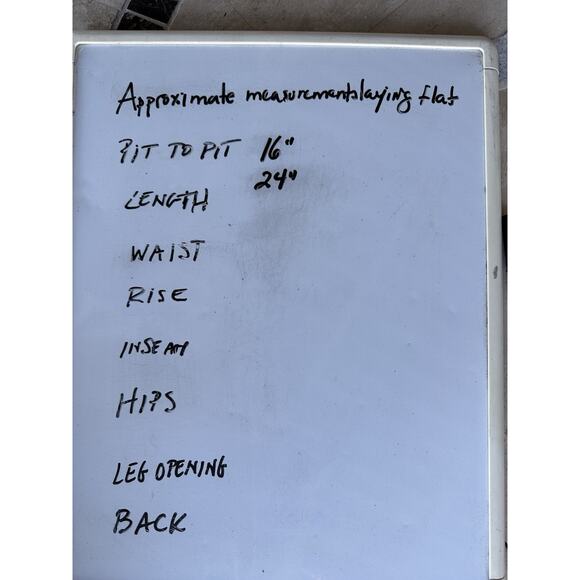 Approximate measurements laying flat
PIT TO PIT 16"
24"
LENGTH
WAIST
RISE
INSEAM
HIPS
LEG OPENING
BACK